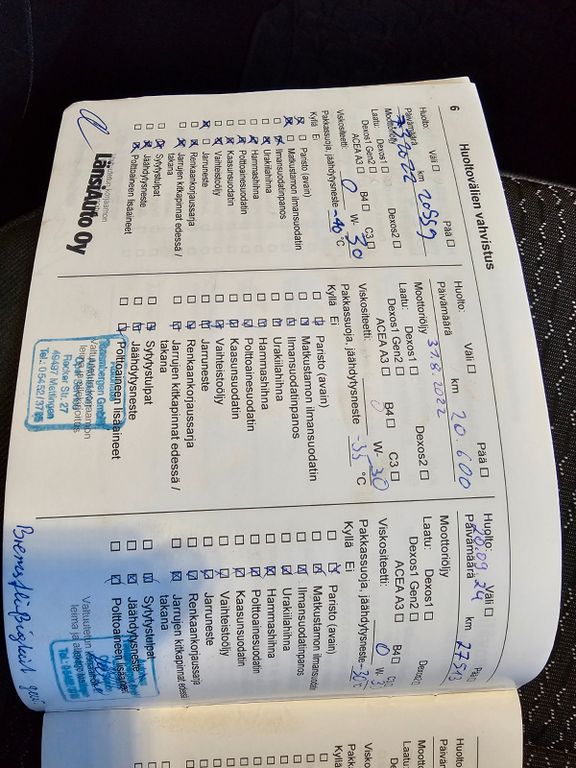 6
Huoltovälien vahvistus
Huolto: Väli ☐ Pää ☐
km 20559
Päivämäärä
Moottoriöljy
Laatu: Dexos1 ☐ Dexos2 ☐
Dexos1 Gen2 ☐
ACEA A3 ☐ B4 ☐ C3 ☐
Viskositeetti: 0 W- 30
Pakkassuoja, jäähdytysneste -40 °C
Kyllä Ei
Paristo (avain)
Matkustamon ilmansuodatin
Ilmansuodatinpanos
Urakiilahihna
Hammashihna
Polttoainesuodatin
Kaasunsuodatin
Vaihteistoöljy
Jarruneste
Renkaankorjaussarja
Jarrujen kitkapinnat edessä /
takana
Sytytystulpat
Jäähdytysneste
Polttoaineen lisäaineet
LänsiAuto Oy
Huolto: Väli ☐ Pää ☐
km 20.600
Päivämäärä 31.8.2022
Moottoriöljy
Laatu: Dexos1 ☐ Dexos2 ☐
Dexos1 Gen2 ☐
ACEA A3 ☐ B4 ☐ C3 ☐
Viskositeetti: 0 W- 30
Pakkassuoja, jäähdytysneste -35 °C
Kyllä Ei
Paristo (avain)
Matkustamon ilmansuodatin
Ilmansuodatinpanos
Urakiilahihna
Hammashihna
Polttoainesuodatin
Kaasunsuodatin
Vaihteistoöljy
Jarruneste
Renkaankorjaussarja
Jarrujen kitkapinnat edessä /
takana
Sytytystulpat
Jäähdytysneste
Polttoaineen lisäaineet
GmbH
Str. 27
49497 Mettingen
Tel.: 05452/3795
Huolto: Väli ☐ Pää ☐
km 27513
Päivämäärä 26.09.24
Moottoriöljy
Laatu: Dexos1 ☐
Dexos1 Gen2 ☐
ACEA A3 ☐ B4 ☐
Viskositeetti: 0 W-
Pakkassuoja, jäähdytysneste -30
Kyllä Ei
Paristo (avain)
Matkustamon ilmansuodatin
Ilmansuodatinpanos
Urakiilahihna
Hammashihna
Polttoainesuodatin
Kaasunsuodatin
Vaihteistoöljy
Jarruneste
Renkaankorjaussarja
Jarrujen kitkapinnat edessä
takana
Sytytystulpat
Jäähdytysneste
Polttoaineen lisäaineet
Bremsflüssigkeit
Huolto:
Päiväm
Moottor
Laatu:
Visko
Pakk
Kyllä